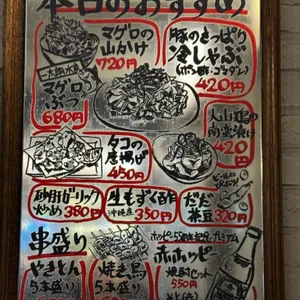 本日のおすすめ
マグロの
山かけ
720円
豚のさっぱり
冷しゃぶ
420円
マグロ
ぶつ
680円
タコの
唐揚げ
450円
大山鶏の
南蛮漬け
420
円
砂肝ガーリック
炒め 380円
生もずく酢
沖縄産 350円
だだ
茶豆 320円
串盛り
やきとん
5本盛り
焼き鳥
5本盛り
赤ホッピー
焼酎セット
550円